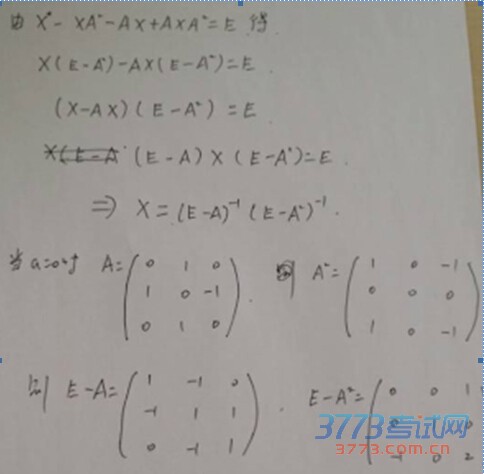 由 X - XA² - AX + AXA² = E 得
X(E-A²) - AX(E-A²) = E
(X-AX)(E-A²) = E
(E-A)X(E-A²) = E.
⇒ X = (E-A)⁻¹(E-A²)⁻¹.
当 a=0时 A= ( 0 1 0 ; 1 0 -1 ; 0 1 0 ). 则 A²= ( 1 0 -1 ; 0 0 0 ; 1 0 -1 )
则 E-A= ( 1 -1 0 ; -1 1 1 ; 0 -1 1 ). E-A²= ( 0 0 1 ; 0 ; -1 0 2
3773考试网
www.3773.com